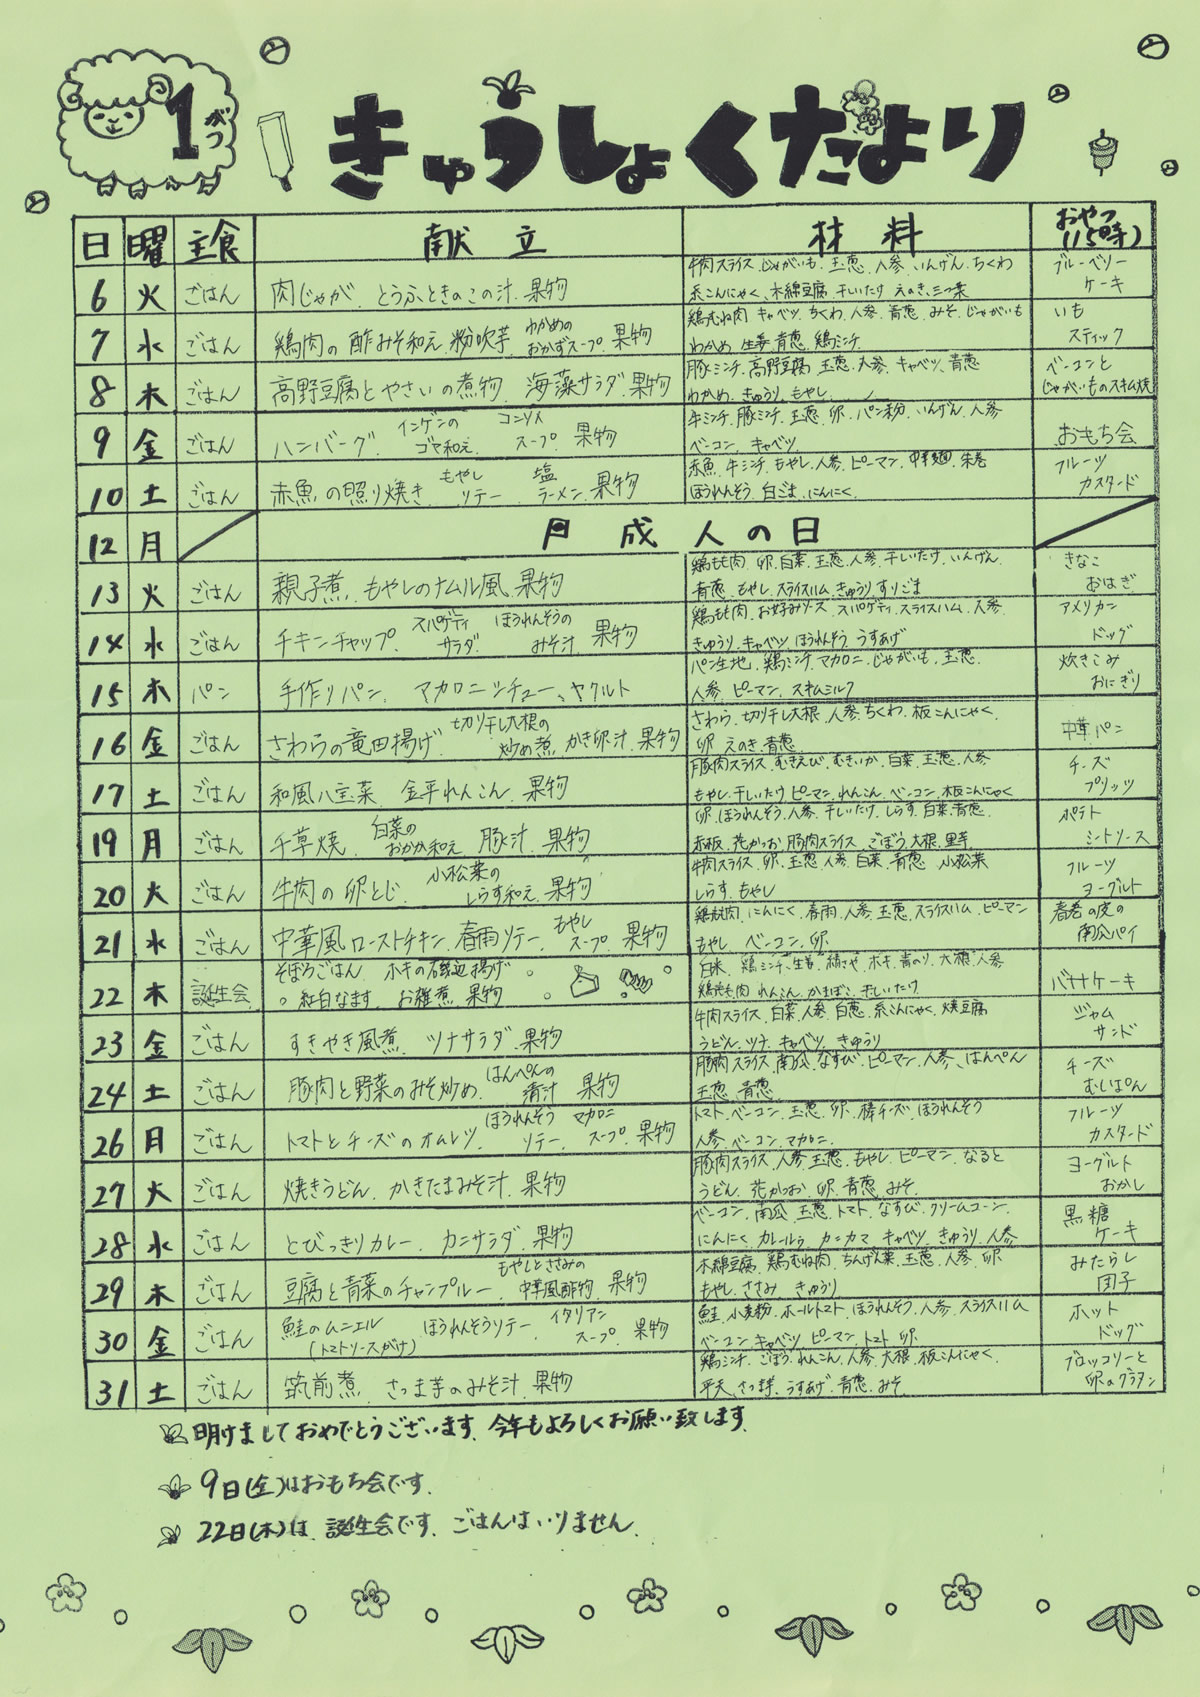 1がつ
きゅうしょくだより
日 曜 主食 献立 材料 おやつ(15時)
6 火 ごはん 肉じゃが、とうふときのこの汁、果物 牛肉スライス、じゃがいも、玉葱、人参、いんげん、ちくわ 糸こんにゃく、木綿豆腐、干しいたけ、えのき、三つ葉 ブルーベリーケーキ
7 水 ごはん 鶏肉の酢みそ和え、粉吹芋、わかめのおかずスープ、果物 鶏むね肉、キャベツ、ちくわ、人参、青葱、みそ、じゃがいも わかめ、生姜、青葱、鶏ミンチ いもスティック
8 木 ごはん 高野豆腐とやさいの煮物、海藻サラダ、果物 豚ミンチ、高野豆腐、玉葱、人参、キャベツ、青葱 わかめ、きゅうり、もやし ベーコンとじゃがいものスキム焼
9 金 ごはん ハンバーグ、インゲンのゴマ和え、コンソメスープ、果物 牛ミンチ、豚ミンチ、玉葱、卵、パン粉、いんげん、人参 ベーコン、キャベツ おもち会
10 土 ごはん 赤魚の照り焼き、もやしソテー、塩ラーメン、果物 赤魚、牛ミンチ、もやし、人参、ピーマン、中華麺、朱巻 ほうれんそう、白ごま、にんにく フルーツカスタード
12 月 成人の日
13 火 ごはん 親子煮、もやしのナムル風、果物 鶏もも肉、卵、白菜、玉葱、人参、干しいたけ、いんげん 青葱、もやし、スライスハム、きゅうり、すりごま きなこおはぎ
14 水 ごはん チキンチャップ、スパゲティサラダ、ほうれんそうのみそ汁、果物 鶏もも肉、お好みソース、スパゲティ、スライスハム、人参 きゅうり、キャベツ、ほうれんそう、うすあげ アメリカンドッグ
15 木 パン 手作りパン、マカロニシチュー、ヤクルト パン生地、鶏ミンチ、マカロニ、じゃがいも、玉葱 人参、ピーマン、スキムミルク 炊きこみおにぎり
16 金 ごはん さわらの竜田揚げ、切り干し大根の炒め煮、かき卵汁、果物 さわら、切り干し大根、人参、ちくわ、板こんにゃく 卵、えのき、青葱 中華パン
17 土 ごはん 和風八宝菜、金平れんこん、果物 豚肉スライス、むきえび、むきいか、白菜、玉葱、人参 もやし、干しいたけ、ピーマン、れんこん、ベーコン、板こんにゃく チーズプリッツ
19 月 ごはん 千草焼、白菜のおかか和え、豚汁、果物 卵、ほうれんそう、人参、干しいたけ、しらす、白菜、青葱 赤板、花かつお、豚肉スライス、ごぼう、大根、里芋 ポテトミートソース
20 火 ごはん 牛肉の卵とじ、小松菜のしらす和え、果物 牛肉スライス、卵、玉葱、人参、白菜、青葱、小松菜 しらす、もやし フルーツヨーグルト
21 水 ごはん 中華風ローストチキン、春雨ソテー、もやしスープ、果物 鶏もも肉、にんにく、春雨、人参、玉葱、スライスハム、ピーマン もやし、ベーコン、卵 春巻の皮の南瓜パイ
22 木 誕生会 そぼろごはん、ホキの磯辺揚げ 紅白なます、お雑煮、果物 白米、鶏ミンチ、生姜、絹さや、ホキ、青のり、大根、人参 鶏もも肉、れんこん、かまぼこ、干しいたけ バナナケーキ
23 金 ごはん すきやき風煮、ツナサラダ、果物 牛肉スライス、白菜、人参、白葱、糸こんにゃく、焼豆腐 うどん、ツナ、キャベツ、きゅうり ジャムサンド
24 土 ごはん 豚肉と野菜のみそ炒め、はんぺんの清汁、果物 豚肉スライス、南瓜、なすび、ピーマン、人参、はんぺん 玉葱、青葱 チーズむしぱん
26 月 ごはん トマトとチーズのオムレツ、ほうれんそうソテー、マカロニスープ、果物 トマト、ベーコン、玉葱、卵、棒チーズ、ほうれんそう 人参、ベーコン、マカロニ フルーツカスタード
27 火 ごはん 焼きうどん、かきたまみそ汁、果物 豚肉スライス、人参、玉葱、もやし、ピーマン、なると うどん、花かつお、卵、青葱、みそ ヨーグルトおかし
28 水 ごはん とびっきりカレー、カニサラダ、果物 ベーコン、南瓜、玉葱、トマト、なすび、クリームコーン にんにく、カレールゥ、カニカマ、キャベツ、きゅうり、人参 黒糖ケーキ
29 木 ごはん 豆腐と青菜のチャンプルー、もやしとささみの中華風酢物、果物 木綿豆腐、鶏むね肉、ちんげん菜、玉葱、人参、卵 もやし、ささみ、きゅうり みたらし団子
30 金 ごはん 鮭のムニエル(トマトソースがけ)、ほうれんそうソテー、イタリアンスープ、果物 鮭、小麦粉、ホールトマト、ほうれんそう、人参、スライスハム ベーコン、キャベツ、ピーマン、トマト、卵 ホットドッグ
31 土 ごはん 筑前煮、さつま芋のみそ汁、果物 鶏ミンチ、ごぼう、れんこん、人参、大根、板こんにゃく 平天、さつま芋、うすあげ、青葱、みそ ブロッコリーと卵のグラタン
明けましておめでとうございます。今年もよろしくお願い致します。
9日(金)はおもち会です。
22日(木)は、誕生会です。ごはんはいりません。